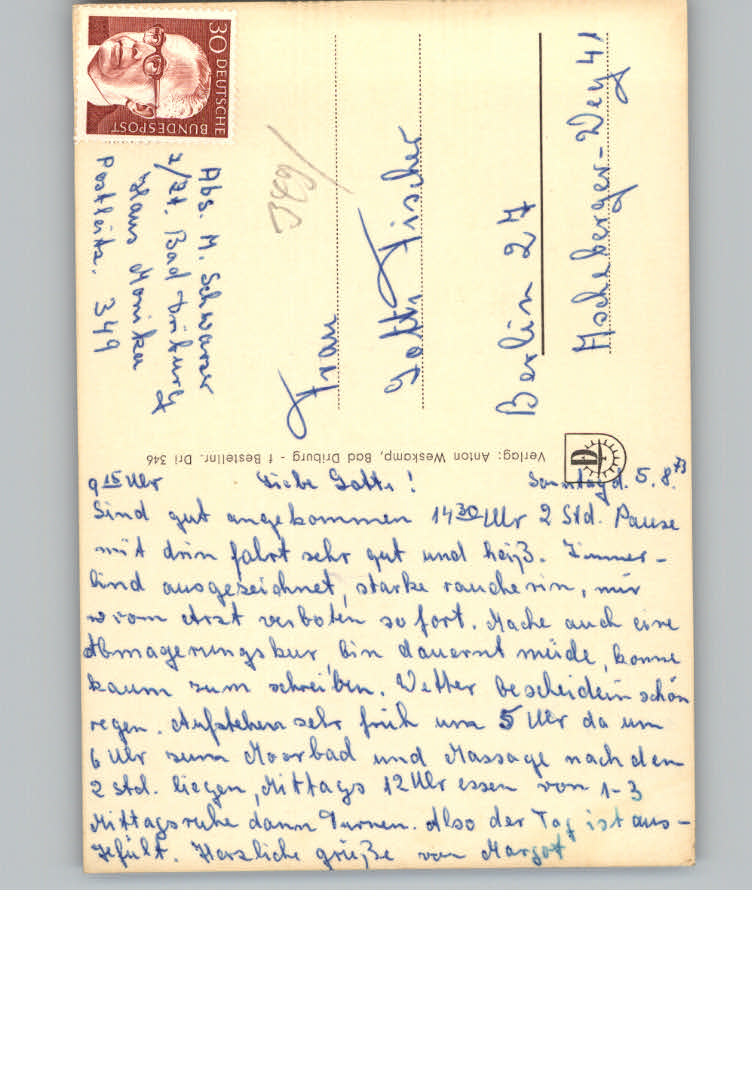 30 DEUTSCHE
BUNDESPOST
Abs. M. Schwarzer
z/Zt. Bad Driburg
Haus Monika
Postleitz. 349
Frau
Fischer
Berlin 27
Ascheberger-Weg 41
Verlag: Anton Weskamp, Bad Driburg - f Bestellnr. Dri 346
D
9 15 Uhr Liebe ! Sonntag d. 5.8.73
Sind gut angekommen 14 30 Uhr 2 Std. Pause
mit drin fahrt sehr gut und heiß. Zimmer-
lind ausgezeichnet, starke raucherin, mir
vom Arzt verboten sofort. Mache auch eine
Abmagerungskur, bin dauernt müide, konne
kaum zum schreiben. Wetter bescheiden schön
regen. Aufstehen sehr früh um 5 Uhr da um
6 Uhr zum Moorbad und Massage nach dem
2 Std. liegen, Mittags 12 Uhr essen von 1-3
Mittagsruhe dann Turnen. Also der Tag ist aus-
gefüllt. Herzliche grüße von Margot